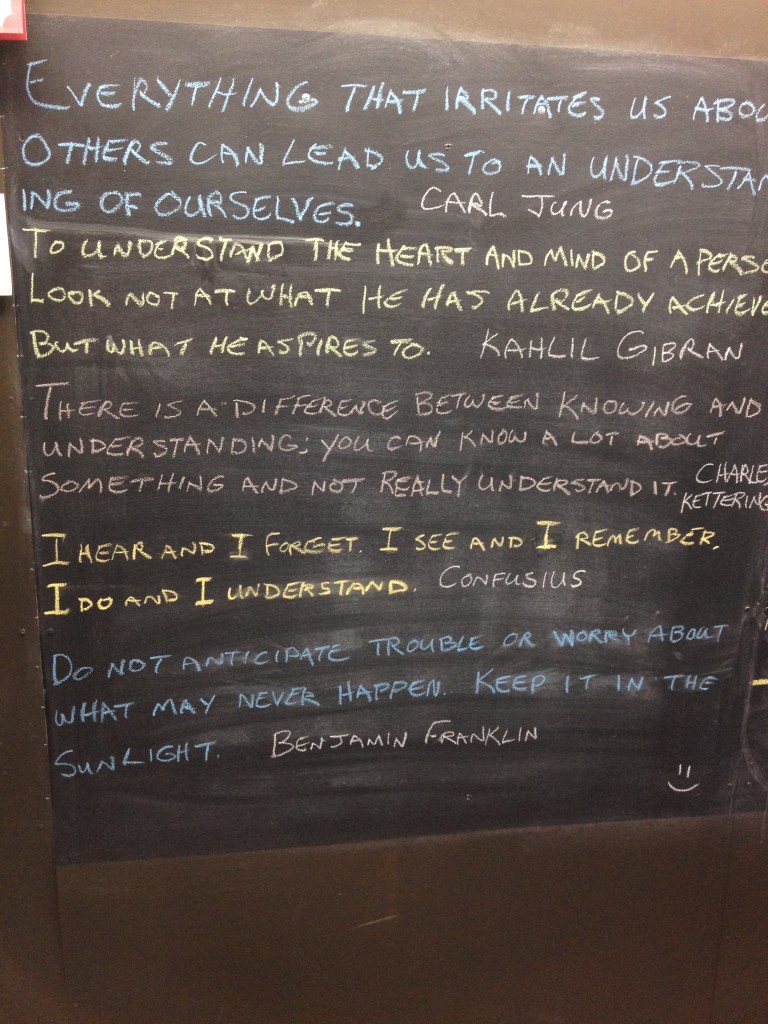 EVERYTHING THAT IRRITATES US ABOU
OTHERS CAN LEAD US TO AN UNDERSTAN
ING OF OURSELVES. CARL JUNG
TO UNDERSTAND THE HEART AND MIND OF A PERSO
LOOK NOT AT WHAT HE HAS ALREADY ACHIEVE
BUT WHAT HE ASPIRES TO. KAHLIL GIBRAN
THERE IS A DIFFERENCE BETWEEN KNOWING AND
UNDERSTANDING; YOU CAN KNOW A LOT ABOUT
SOMETHING AND NOT REALLY UNDERSTAND IT. CHARLES
KETTERING
I HEAR AND I FORGET. I SEE AND I REMEMBER.
I DO AND I UNDERSTAND. CONFUSIUS
DO NOT ANTICIPATE TROUBLE OR WORRY ABOUT
WHAT MAY NEVER HAPPEN. KEEP IT IN THE
SUNLIGHT. BENJAMIN FRANKLIN